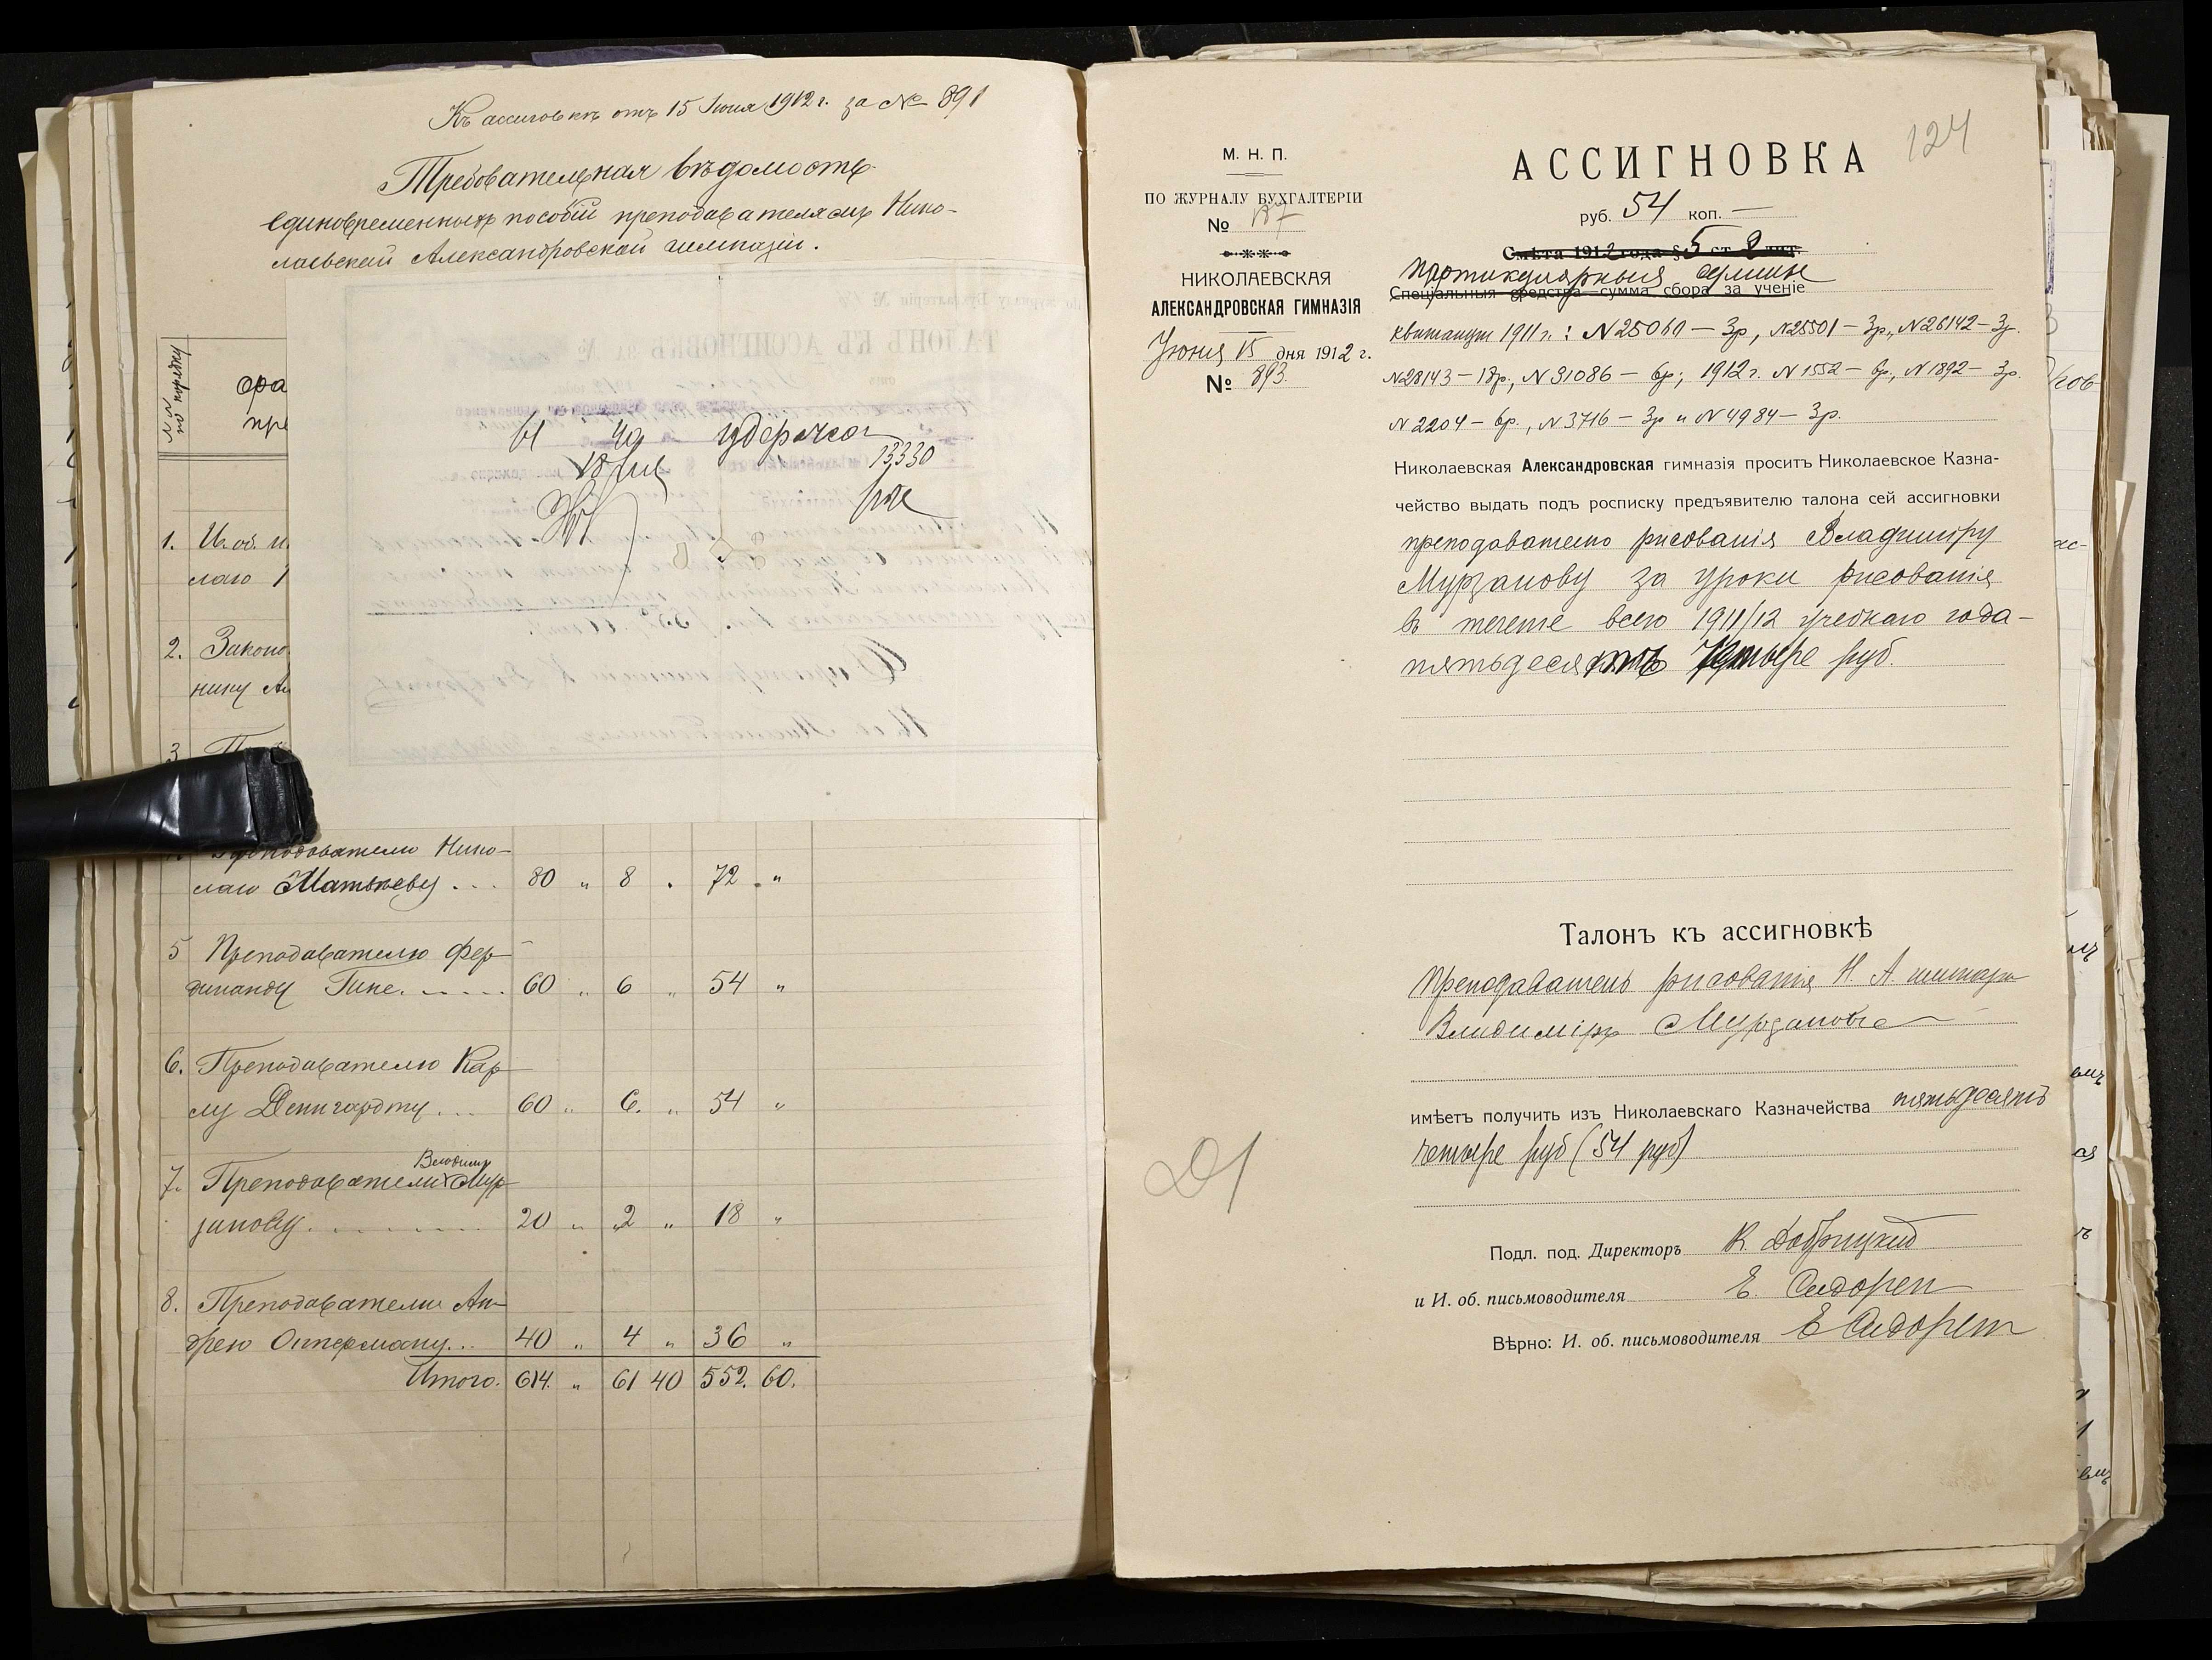 Къ ассигновкѣ отъ 15 Июня 1912 г. за № 891
Требовательная вѣдомость
единовременныхъ пособій преподавателямъ Нико-
лаевской Александровской гимназіи.
№№ по порядку
фа
пре
61 40 удержано
13330
1. И. об. и.
лаю
2. Законо
нику Ал
3
Преподавателю Нико-
лаю Матвѣеву . . . 80 „ 8 . 72 . „
5 Преподавателю Фер-
динанду Гине. . . . . 60 „ 6 „ 54 „
6. Преподавателю Кар-
лу Ленигардту . . . 60 „ 6. „ 54 „
7. Преподавателю Владимиру Мур-
занову . . . . . 20 „ „2 „ 18 „
8. Преподавателю Ан-
дрею Опперману . . . 40 „ 4 „ 36 „
Итого. 614. „ 61 40 552. 60.
124
М. Н. П.
ПО ЖУРНАЛУ БУХГАЛТЕРІИ
№ 187
НИКОЛАЕВСКАЯ
АЛЕКСАНДРОВСКАЯ ГИМНАЗІЯ
Июня 15 дня 1912 г.
№ 893.
АССИГНОВКА
руб. 54 коп. —
Смѣта 1912 года § 5 ст. 2 лит.
Партикулярныя суммы
Спеціальныя средства сумма сбора за ученіе
квитанціи 1911 г.: N 25060 — 3р., N 25501 — 3р., N 26142 — 3р.
N 28143 — 18р., N 31086 — 6р.; 1912 г. N 1552 — 6р., N 1892 — 3р.
N 2204 — 6р., N 3716 — 3р и N 4984 — 3р.
Николаевская Александровская гимназія проситъ Николаевское Казна-
чейство выдать подъ росписку предъявителю талона сей ассигновки
преподавателю рисованія Владиміру
Мурзанову за уроки рисованія
въ теченіе всего 1911/12 учебнаго года —
пятьдесятъ четыре руб.
Талонъ къ ассигновкѣ
Преподаватель рисованія Н. А. гимназіи
Владиміръ Мурзановъ
имѣетъ получить изъ Николаевскаго Казначейства пятьдесятъ
четыре руб (54 руб)
Подл. под. Директоръ К. Добрицкій
и И. об. письмоводителя Е. Сидорен
Вѣрно: И. об. письмоводителя Е Сидорен